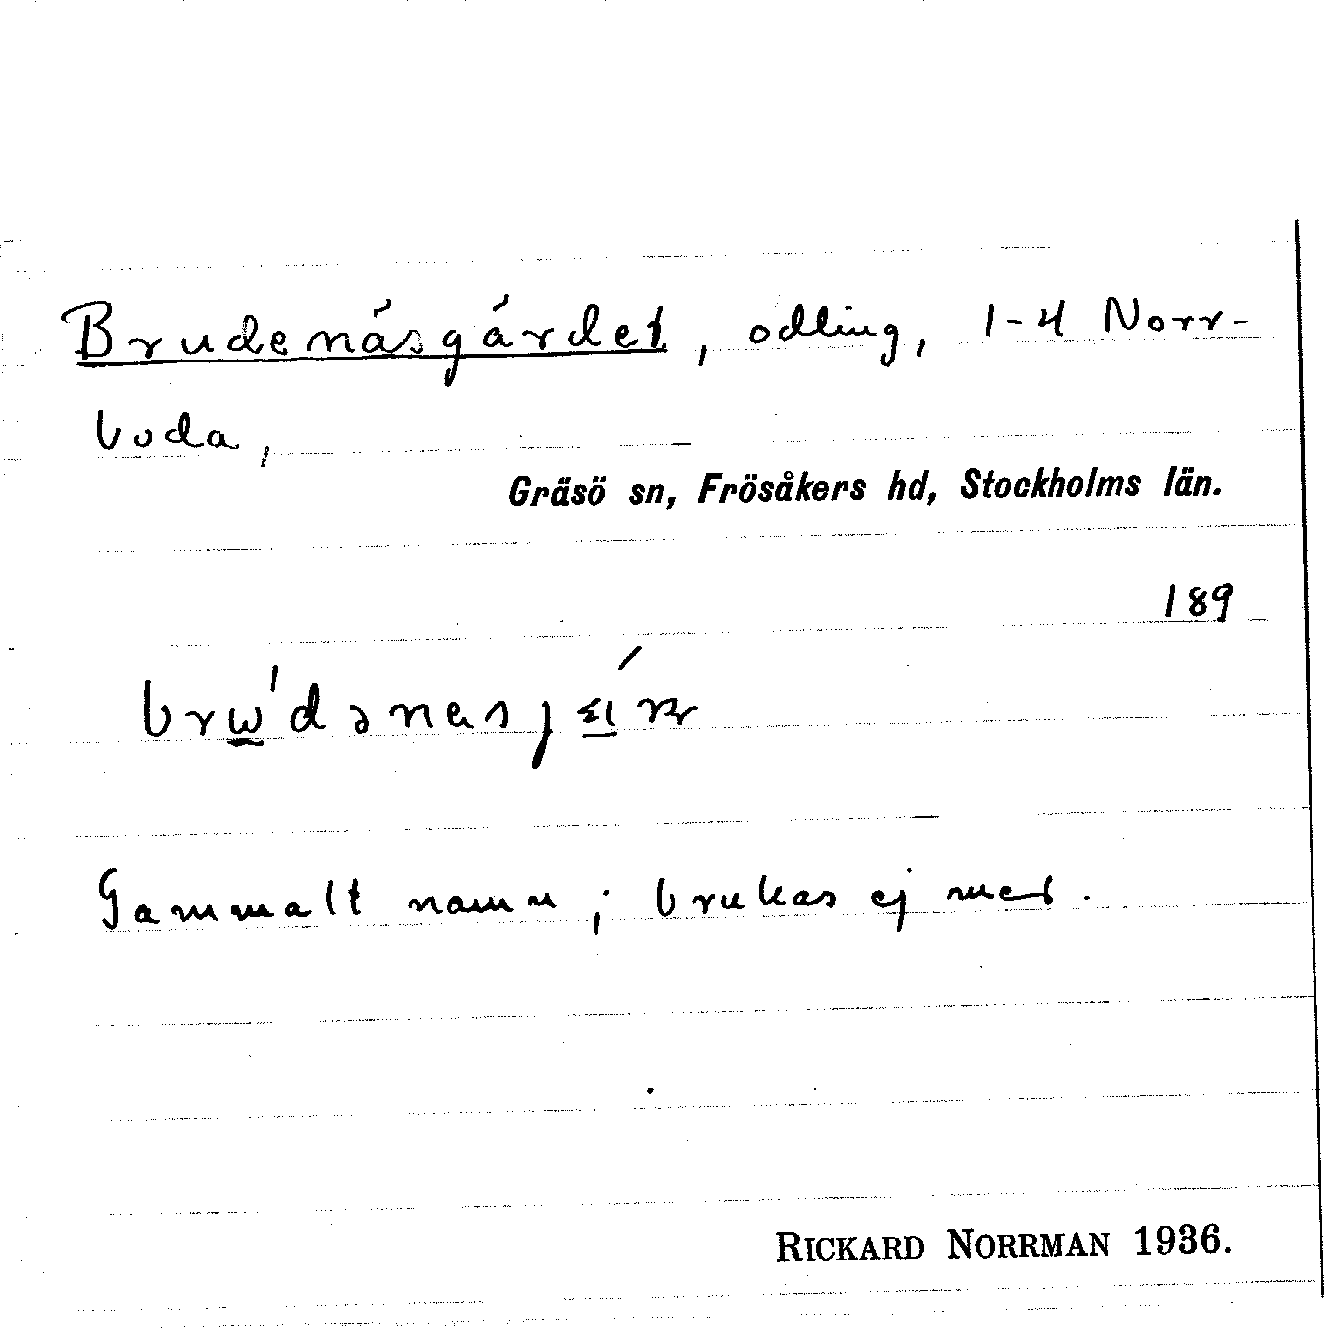 Brudenäsgärdet, odling, 1-4 Norr-
boda,
Gräsö sn, Frösåkers hd, Stockholms län.
189
Gammalt namn; brukas ej mer.
RICKARD NORRMAN 1936.